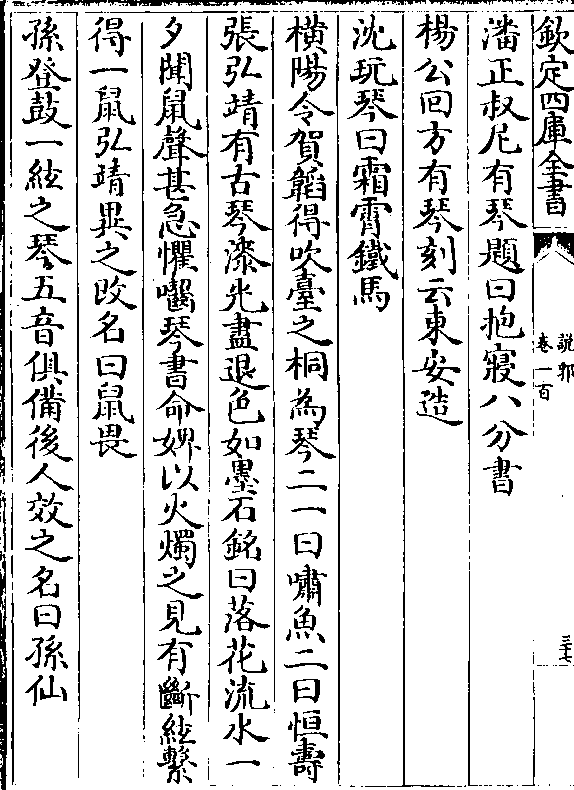 欽定四庫全書
說郛
卷一百
三十七
潘正叔尼有琴題曰抱寢八分書
楊公回方有琴刻云東安造
沈玩琴曰霜霄鐵馬
橫陽令賀韜得吹臺之桐為琴二一曰嘯魚二曰恒壽
張弘靖有古琴漆光盡退色如墨石銘曰落花流水一
夕聞鼠聲甚急懼囓琴書命婢以火燭之見有斷絃繫
得一鼠弘靖異之改名曰鼠畏
孫登鼓一絃之琴五音俱備後人效之名曰孫仙